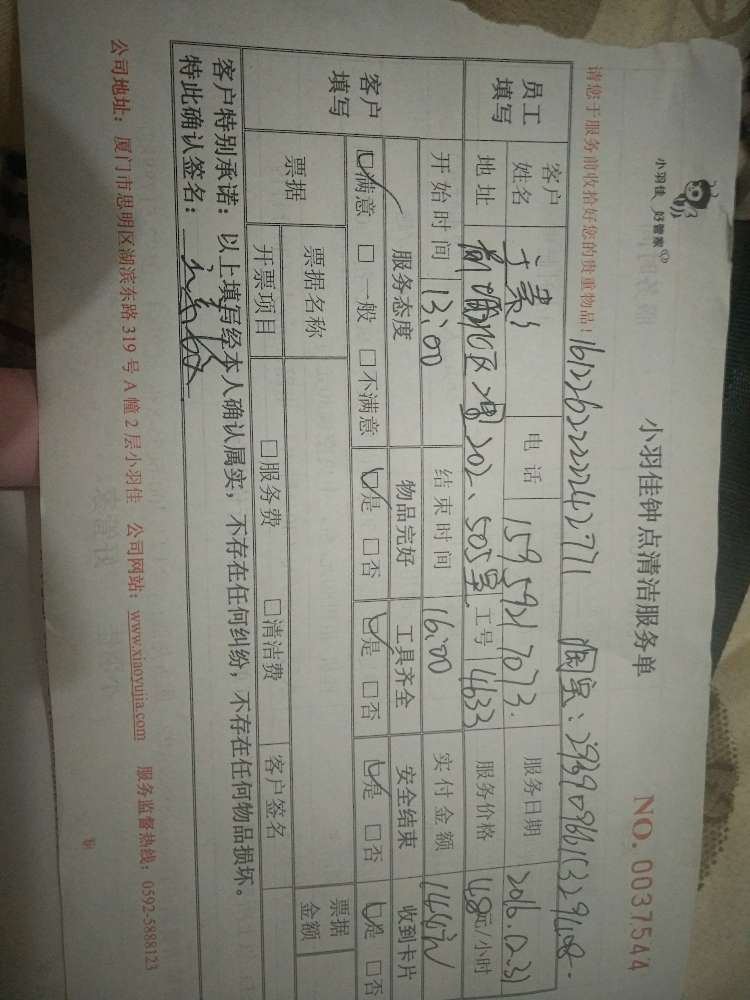 小羽佳 好管家
小羽佳钟点清洁服务单
NO. 0037544
请您于服务前收拾好您的贵重物品!
员工填写
客户姓名
电话 15959217073.
服务日期 2016.12.31
地址 202、505室
工号 4633
服务价格 48元/小时
客户填写
开始时间 13:00
结束时间 16:00
实付金额 144元
服务态度 物品完好 工具齐全 安全结束 收到卡片
☑满意 □一般 □不满意 ☑是 □否 ☑是 □否 ☑是 □否 ☑是 □否
票据
票据名称
票据金额
开票项目 □服务费 □清洁费 客户签名
客户特别承诺:以上填写经本人确认属实,不存在任何纠纷,不存在任何物品损坏。
特此确认签名:
公司地址:厦门市思明区湖滨东路319号A幢2层小羽佳 公司网站:www.xiaoyujia.com 服务监督热线:0592-5888123